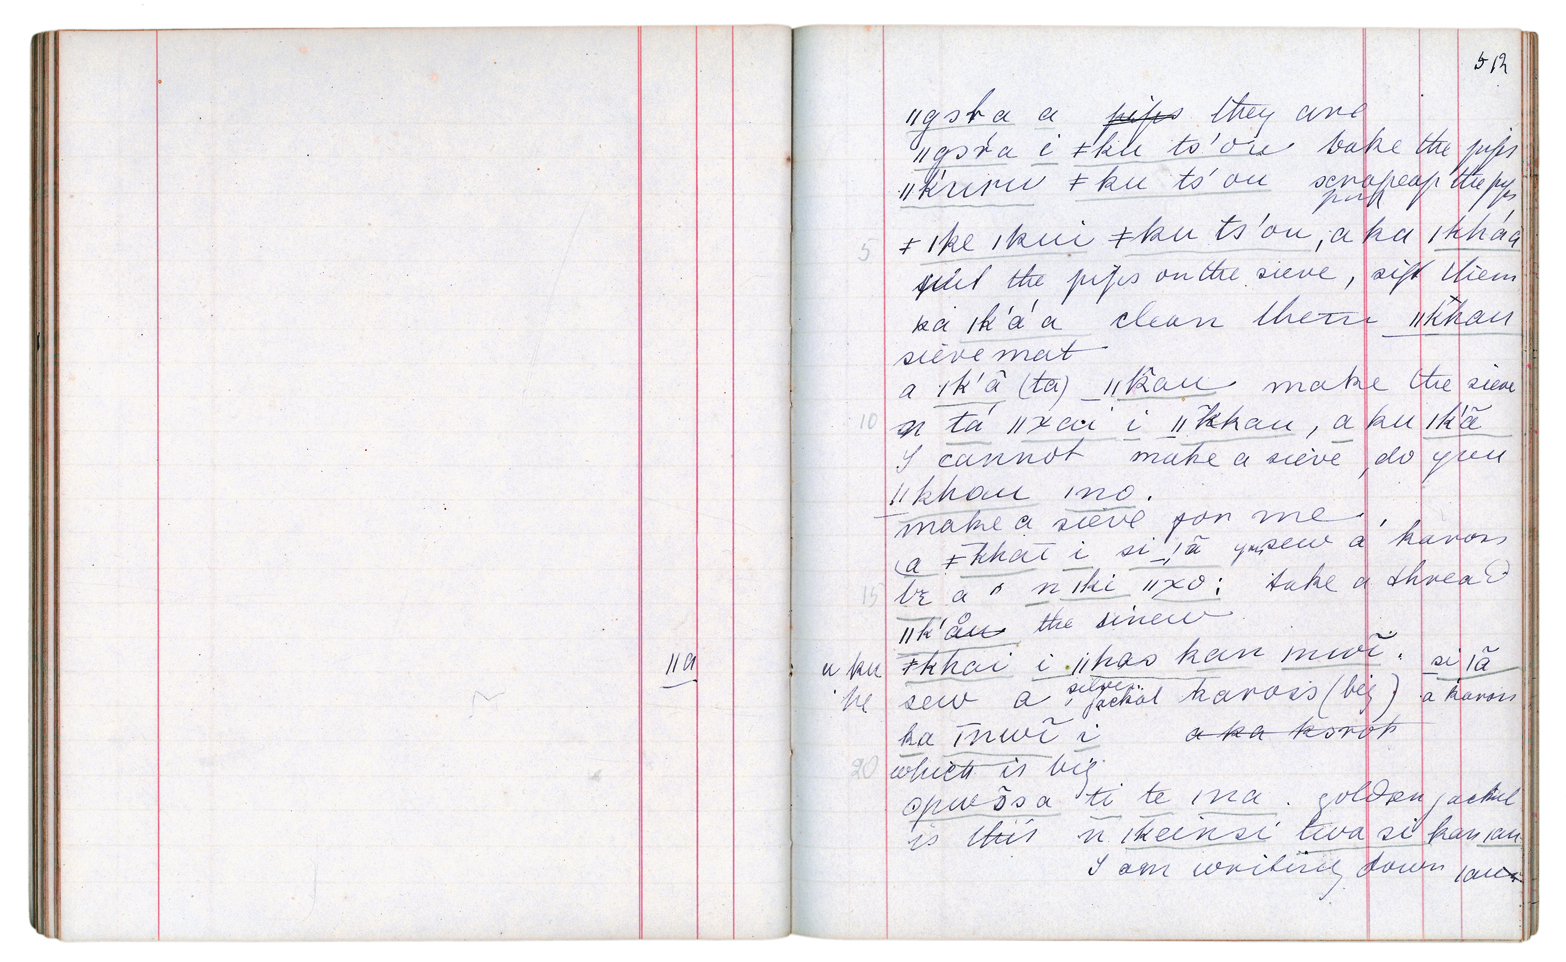 512
ǁgəba a pips they are
ǁgəra i ǂku ts'ou bake the pips
ǁk'uru ǂku ts'ou scrape up the pips
5 ǂ ǀke ǀkui ǂku ts'ou, a ka ǀkháa
put the pips on the sieve, sift them
ka ǀk'á'a clean them ǁkhau
sieve mat
a ǀk'ā (ta) ǁkau make the sieve
10 n tá ǁxai i ǁkhau, a ku ǀk'ā
I cannot make a sieve, do you
ǁkhau ǀno.
make a sieve for me
a ǂkhai i si ǀā you sew a kaross
15 a n ǀki ǁxo: take a thread
ǁk'åu the sinew
ǁa
a ku ǂkhai i ǁhas kan ǀnwī. si ǀā
he sew a silver jackal kaross (big) a kaross
ka ǀnwī i a ka
20 which is big
ti te ǀna. golden jackal
is this n ǀkeinsi twa si kan ǀau
I am writing down ǀau